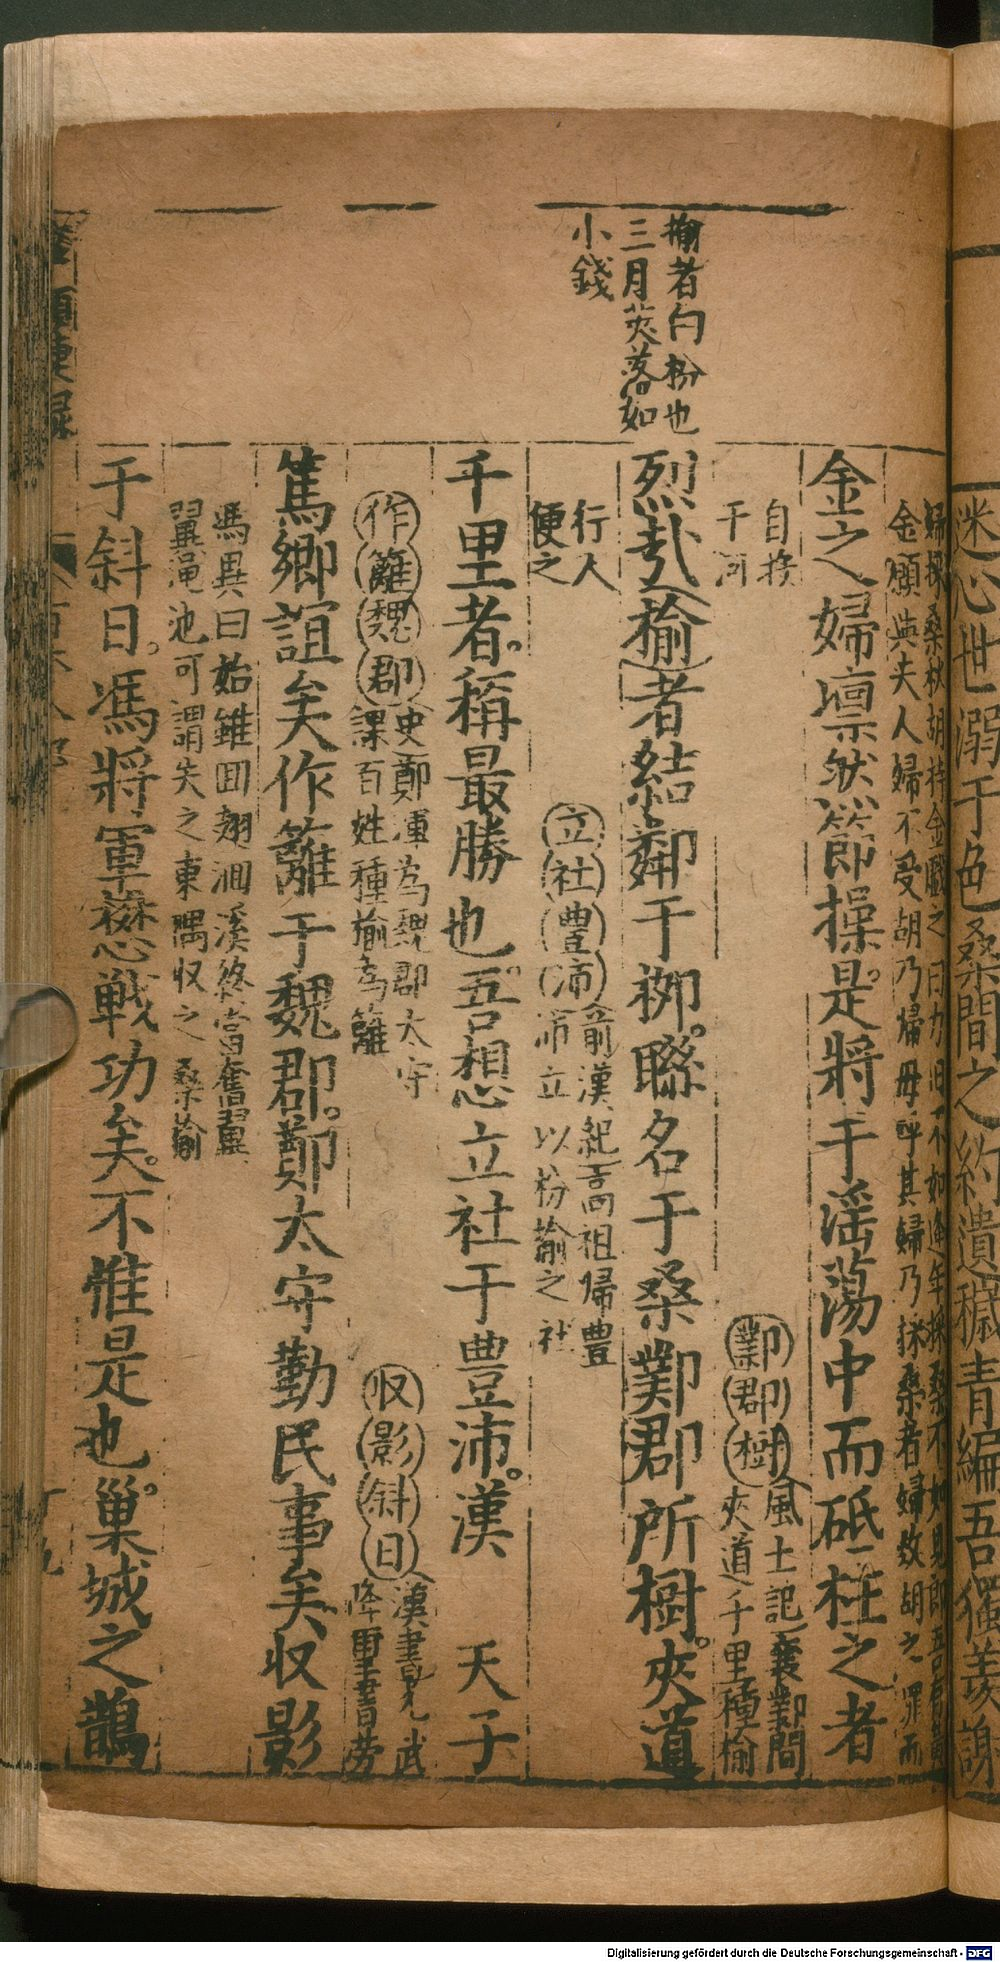 迷心世溺于色桑間之約遺穢青編吾僅羡謝
榆者白枌也
三月莢落如
小錢
婦採桑秋胡持金戲之曰力田不如逢年採桑不如見郎吾有
金願與夫人婦不受胡乃歸母呼其婦乃採桑者婦数胡之罪而
自投
于河
金之婦凛然節操是將于滛蕩中而砥柱之者
鄴郡樹
風土記襄鄴間
夾道千里種榆
行人
便之
烈㢤榆者結鄰于栁聯名于桑鄴郡所樹夾道
立社豊沛
前漢紀高祖歸豊
沛立以枌榆之社
千里者稱最勝也吾想立社于豊沛漢 天子
作籬魏郡
史鄭渾為魏郡太守
課百姓種榆為籬
収影斜日
漢書光武
降璽書劳
篤鄉誼矣作籬于魏郡鄭太守勤民事矣収影
馮異曰始雖囬翅洄溪終當奮翼
翼澠池可謂失之東隅収之桑榆
于斜日馮將軍懋戰功矣不惟是也巢城之鵲
Digitalisierung gefördert durch die Deutsche Forschungsgemeinschaft - DFG